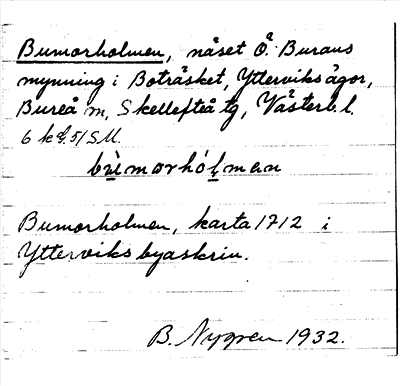 Bumorholmen, näset Ö. Burans
mynning i Boträsket, Ytterviks ägor,
Bureå m, Skellefteå tg, Västerb. l.
6 kf. 51 SM.
bùmorhólman
Bumorholmen, karta 1712 i
Ytterviks byaskrin.
B. Nygren 1932.